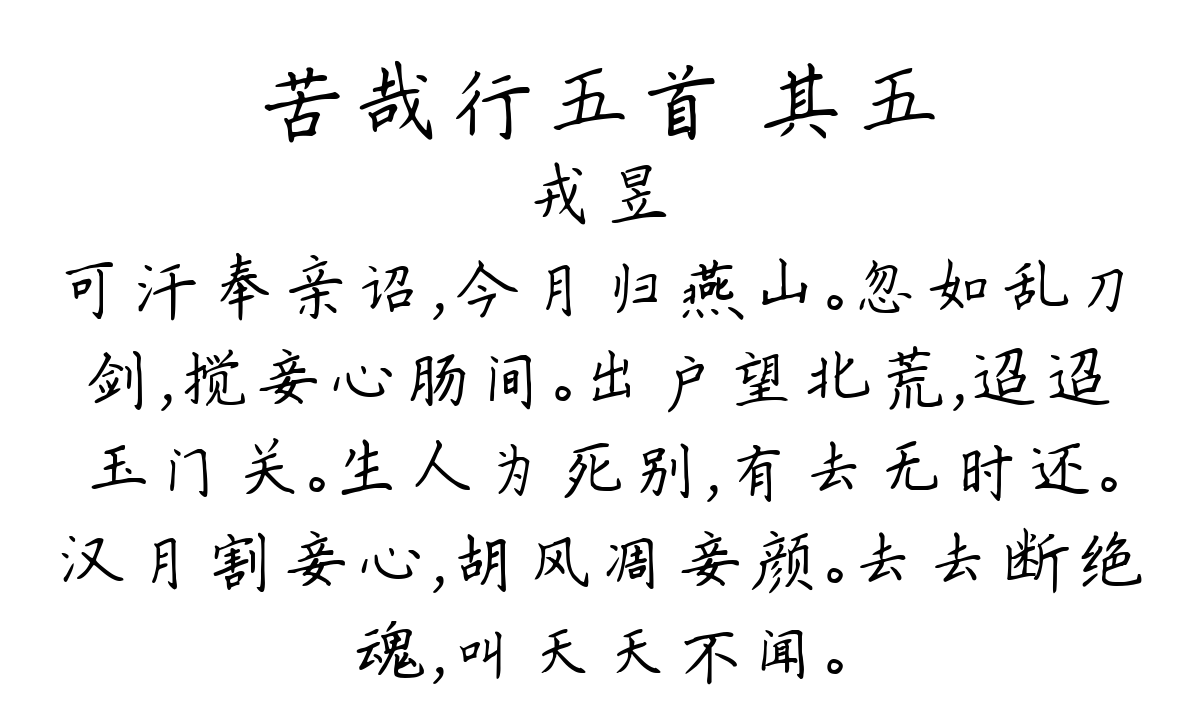 苦哉行五首 其五
戎昱
可汗奉亲诏,今月归燕山。忽如乱刀
剑,搅妾心肠间。出户望北荒,迢迢
玉门关。生人为死别,有去无时还。
汉月割妾心,胡风凋妾颜。去去断绝
魂,叫天天不闻。